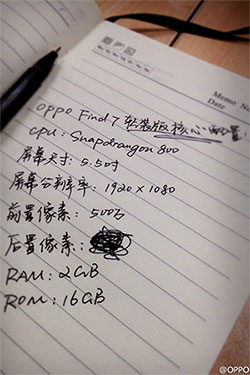 Memo No.
Date
OPPO Find 7 轻装版核心配置
CPU: Snapdragon 800
屏幕尺寸: 5.5吋
屏幕分辨率: 1920×1080
前置像素: 500万
后置像素:
RAM: 2GB
ROM: 16GB
@OPPO